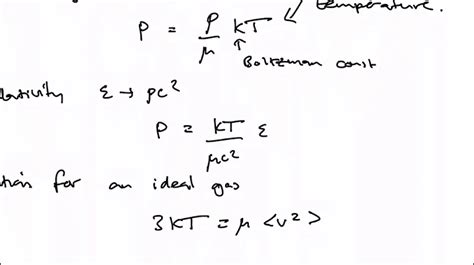 temperature.
P = ρ/μ kT
Boltzman const
ativity ε → ρc²
P = kT/μc² ε
tion for an ideal gas
3kT = μ <v²>